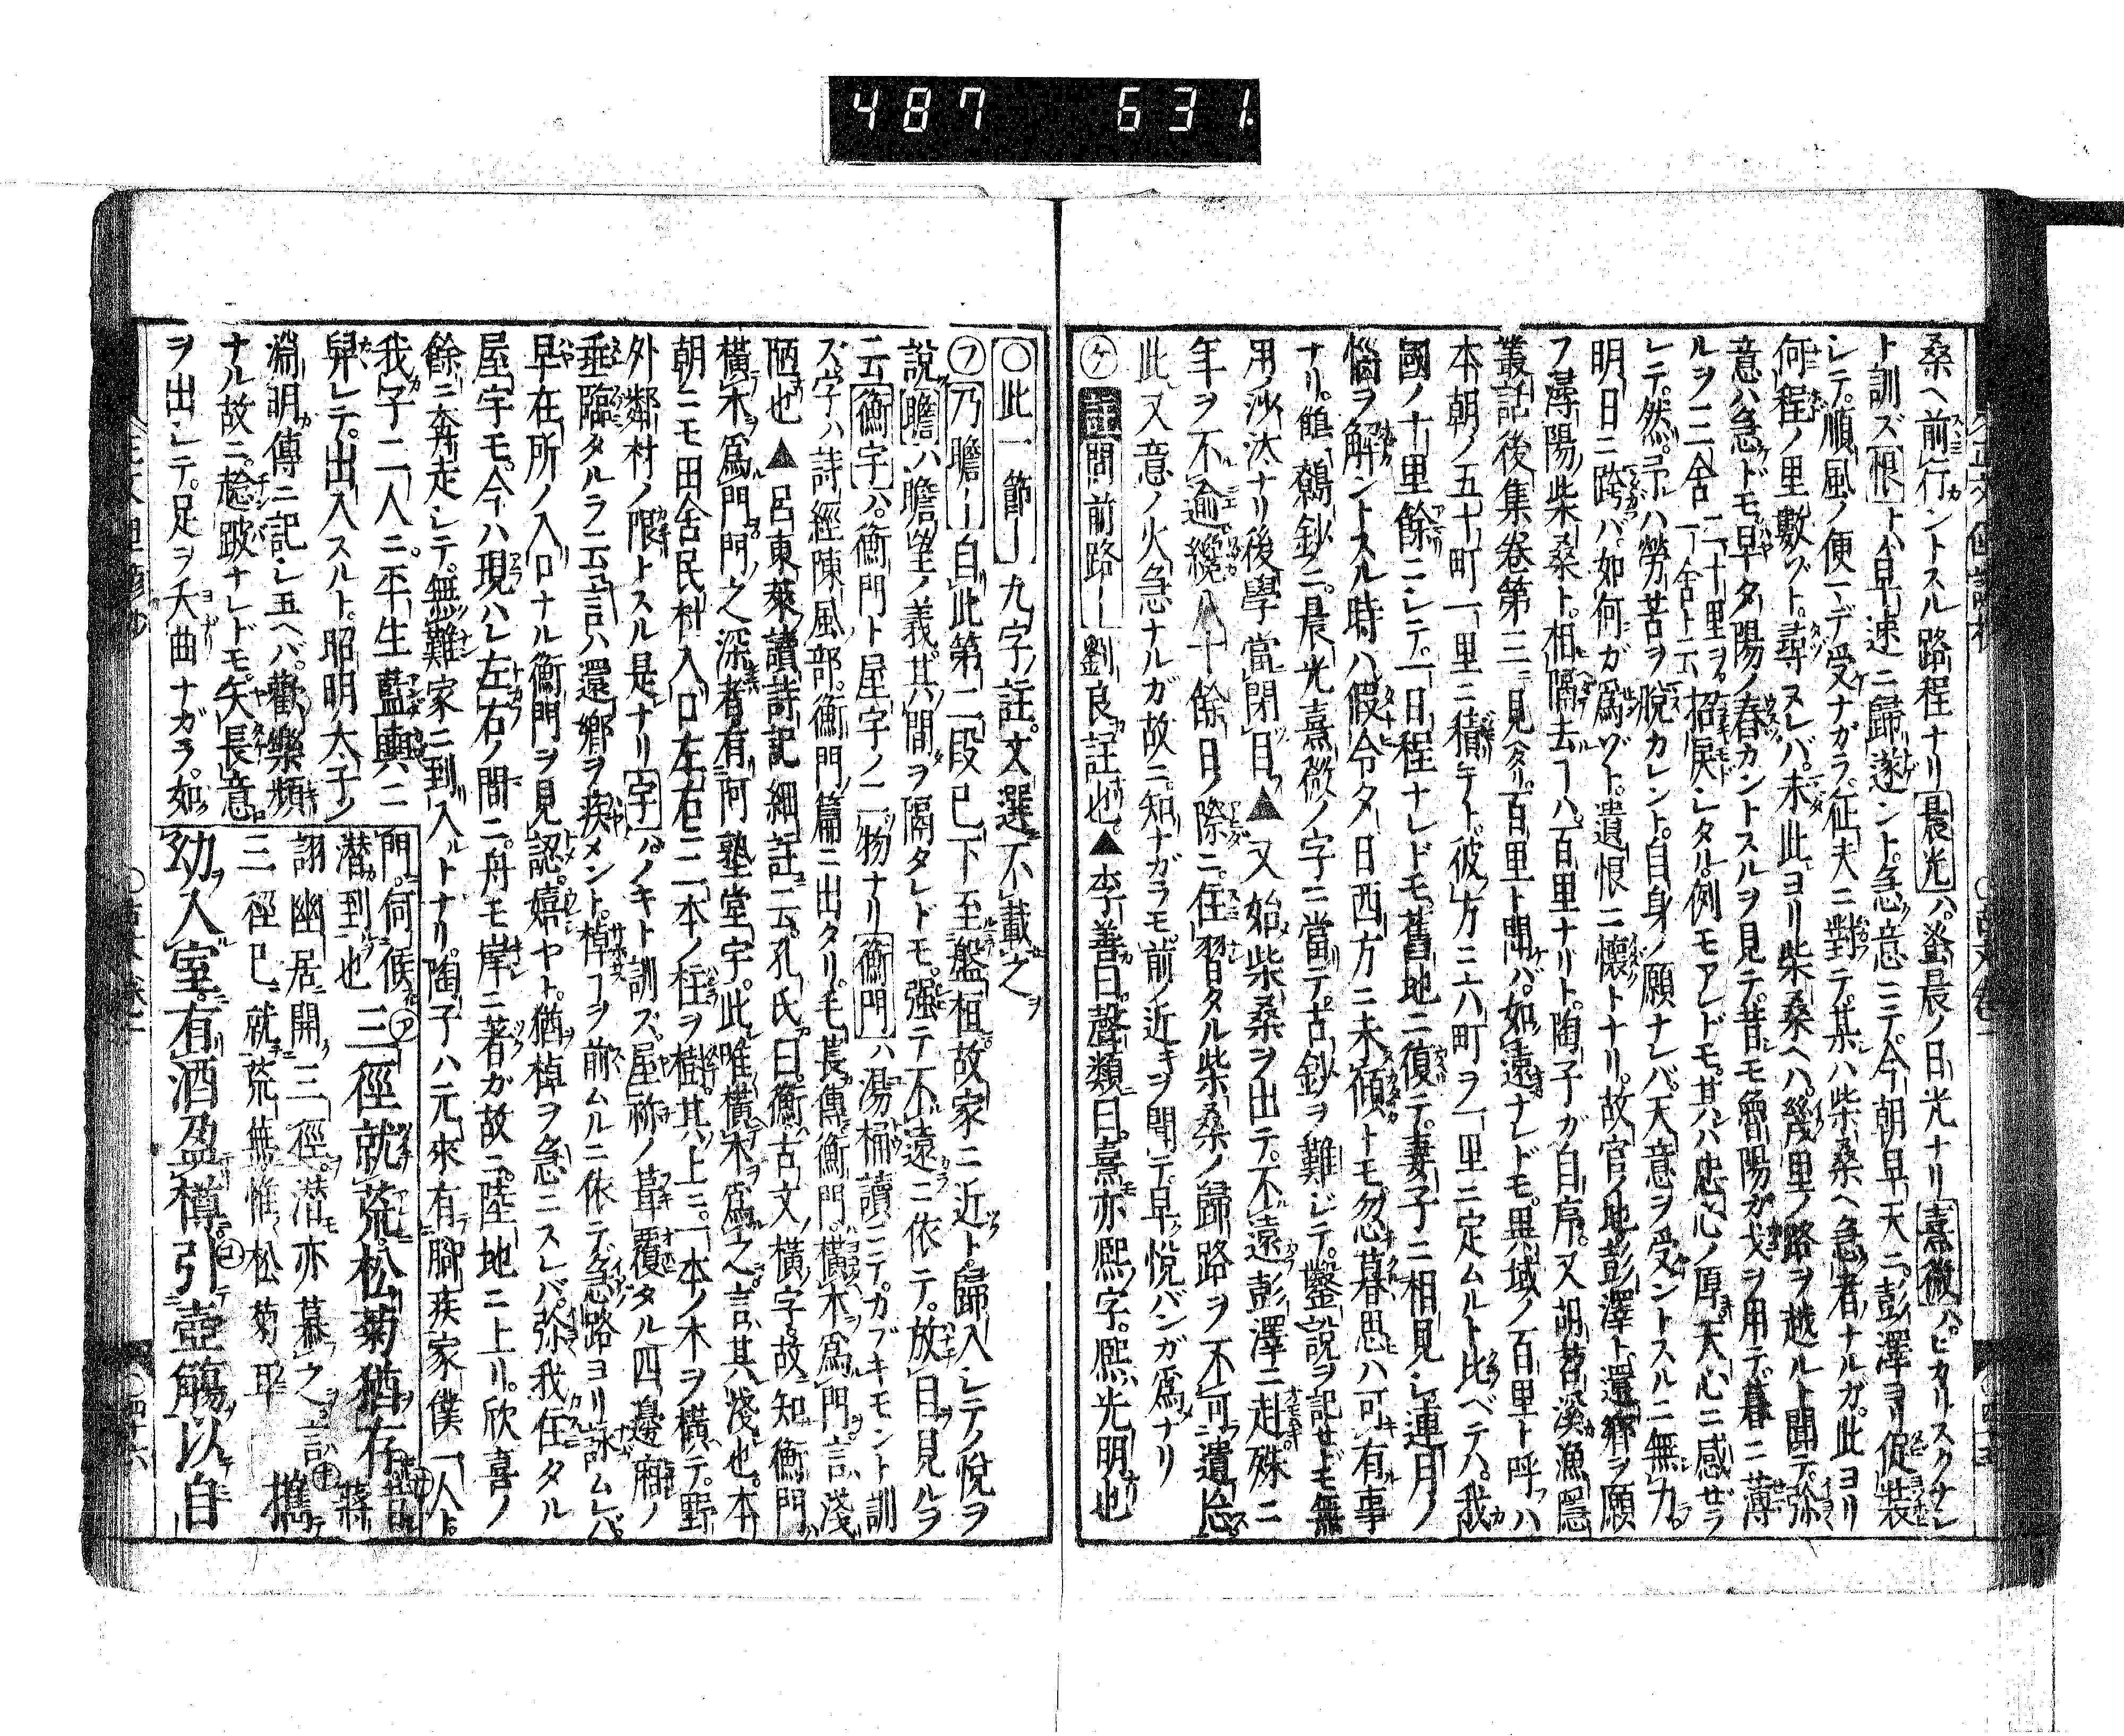 487 631.
桑ヘ前行ントスル路程ナリ晨光ハ蚤晨ノ日光ナリ熹微ハヒカリスクナシ
ト訓ズ恨トハ早速ニ歸遂ント急意ニテ今朝早天ニ彭澤ヨリ促裝
シテ順風ノ便マデ受ナガラ征夫ニ對テ某ハ柴桑ヘ急者ナルガ此ヨリ
何程ノ里數ゾト尋ヌレバ未此ヨリ柴桑ヘハ幾里ノ路ヲ越ルト聞テ弥
意ハ急ドモ早夕陽ノ舂カントスルヲ見テ昔モ魯陽ガ戈ヲ用テ暮ニ薄
ルヲ三舍二十里ヲ一舍ト云招戻シタル例モアレドモ其ハ忠心ノ厚天心ニ感ゼラ
レテ然ル吊ハ勞苦ヲ脫カレント自身ノ願ナレバ天意ヲ受ントスルニ無力
明日ニ跨バ如何ガ爲ゾト遺恨ニ懷トナリ故官ノ地彭澤ト還鄕ヲ願
フ潯陽柴桑ト相隔去ヿハ百里ナリト陶子ガ自序又胡苕溪漁隱
叢話後集卷第三ニ見タリ百里ト聞バ如遠ナレドモ異域ノ百里ト呼ハ
本朝ノ五十町一里ニ積テト彼方ニ六町ヲ一里ニ定ムルト比ベテハ我
國ノ十里餘ニシテ一日程ナレドモ舊地ニ復テ妻子ニ相見シ連月ノ
惱ヲ解ントスル時ハ假令夕日西方ニ未傾トモ忽暮思ハ可有事
ナリ鶬鶊鈔ニ晨光熹微ノ字ニ當テ古鈔ヲ難ジテ鑿說ヲ記セドモ無
用ノ沙汰ナリ後學當閉目▲又始柴桑ヲ出テ不遠彭澤ニ赴殊ニ
年ヲ不逾纔八十餘日ノ際ニ住習タル柴桑ノ歸路ヲ不可遺忘
此又意ノ火急ナルガ故ニ知ナガラモ前ノ近キヲ聞テ早ク悅バンガ爲ナリ
ケ 註問前路ー劉良註也▲李善曰聲類曰熹亦熙字熙光明也
○此一節ー九字ノ註文選不載之
フ乃瞻ー自此第二段已下至盤桓故家ニ近ト歸入シテノ悅ヲ
說瞻ハ瞻望ノ義其ハ間ヲ隔タレドモ强テ不遠ニ依テ放目見ルヲ
云衡宇ハ衡門ト屋宇ノ二物ナリ衡門ハ湯桶讀ニテカブキモント訓
ズ字ハ詩經陳風部衡門篇ニ出タリ毛萇傳衡門橫木爲門言淺
陋也▲呂東萊讀詩記細註云孔氏曰衡古文ノ橫字故知衡門
橫木爲門門之深者有阿塾堂宇此唯橫木爲之言其淺也本
朝ニモ田舍民村入口左右ニ二本ノ柱ヲ樹其上ニ一本ノ木ヲ橫テ野
外鄰村ノ限トスル是ナリ宇ハノキト訓ズ屋祢ノ葺覆タル四邊廂ノ
垂臨タルヲ云言ハ還鄕ヲ疾メント棹ヿヲ前ムルニ依テ急路ヨリ詠ムレバ
早在所ノ入口ナル衡門ヲ見認嬉ヤト猶棹ヲ急ニスレバ弥我住タル
屋宇モ今ハ現ハレ左右ノ間ニ舟モ岸ニ著ガ故ニ陸地ニ上リ欣喜ノ
餘ニ奔走シテ無難家ニ到入トナリ陶子ハ元來有脚疾家僕一人ト
我子二人ニ平生藍輿ニ
舁レテ出入スルト昭明太子ノ
淵明傳ニ記シ玉ヘバ歡樂頻
ナル故ニ趁跛ナレドモ矢長意
ヲ出シテ足ヲ夭曲ナガラ如
門伺候ア三徑就荒松菊猶存
潛到也 蔣
詡幽居開三徑潛亦慕之言
三徑已就荒蕪惟松菊耳 攜
幼入室有酒盈樽引壺觴以自